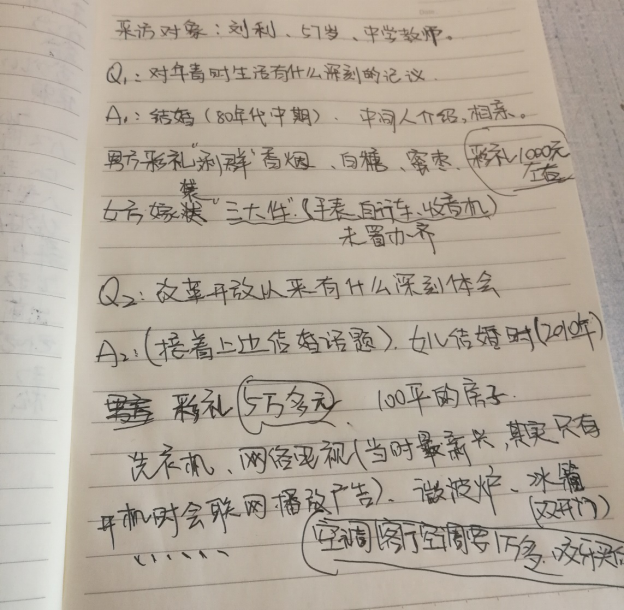 采访对象：刘利、57岁、中学教师。
Q1：对年青时生活有什么深刻的记议.
A1：结婚（80年代中期）. 中间人介绍，相亲。
男方彩礼"利群"香烟、白糖、蜜枣、彩礼1000元
左右
女方嫁装"三大件"（手表、自行车、收音机）
未置办齐
Q2：改革开放以来有什么深刻体会
A2：（接着上边结婚话题）. 女儿结婚时（2010年）
彩礼5万多元、100平的房子.
洗衣机、网络电视（当时最新兴，其实只有
开机时会联网播放广告）、微波炉、冰箱
（双开门）
......
空调 客厅空调要1万多.咬牙买